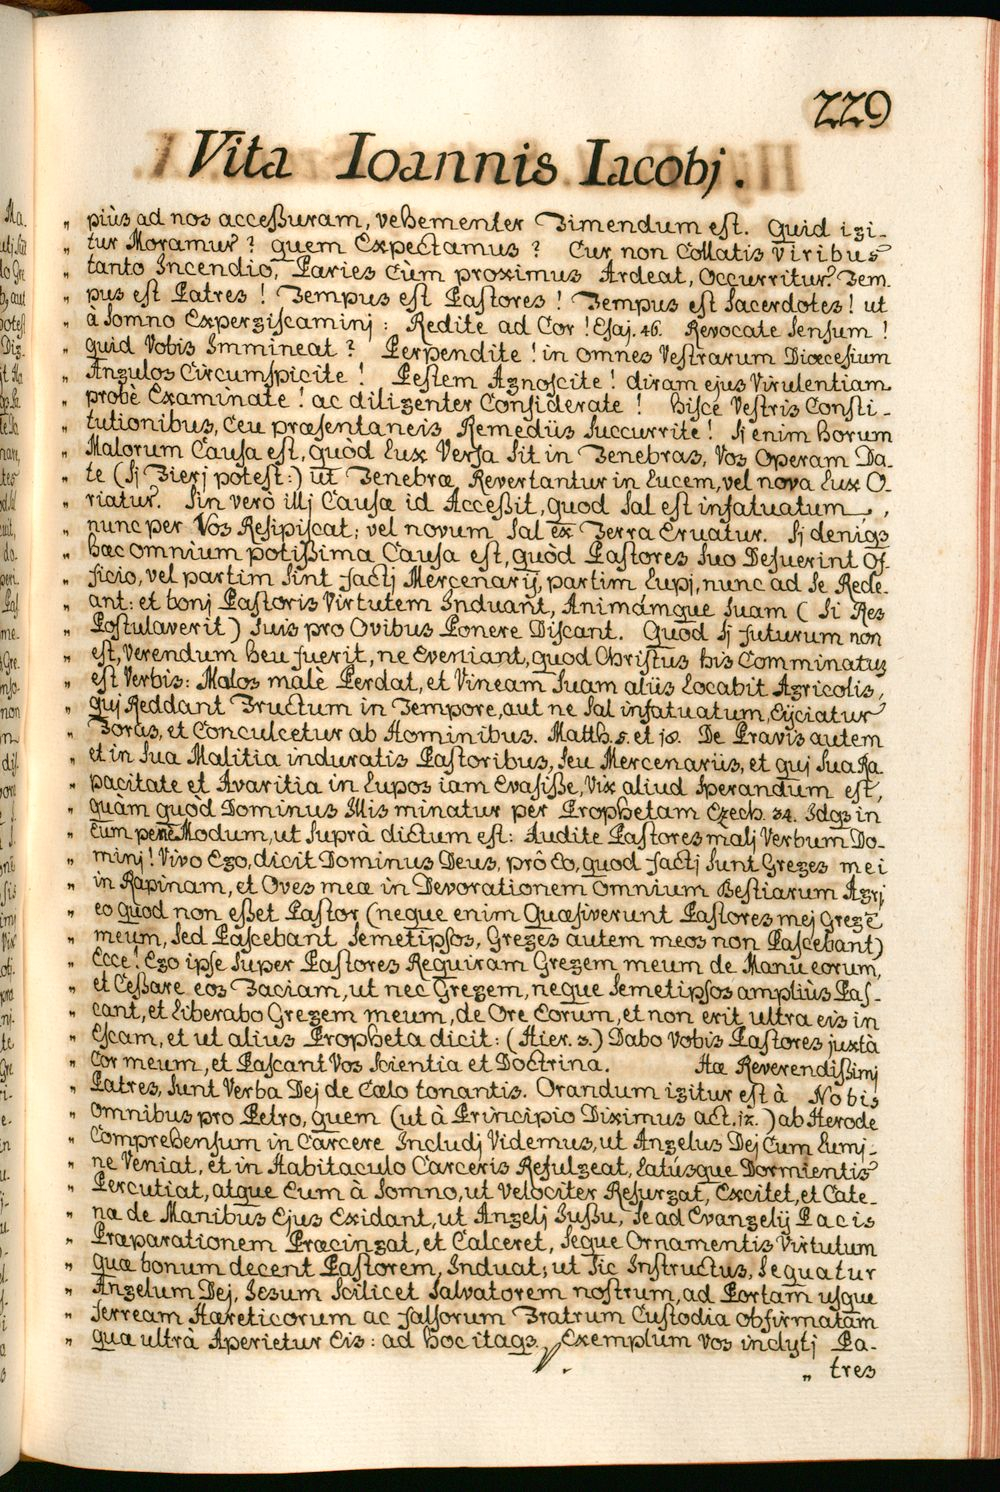 229
Vita Ioannis Iacobj.
„ piùs ad nos acceßuram, vehementer Timendum est. Quid igi-
„ tur Moramur? quem Expectamus? Cur non Collatis Viribus
„ tanto Incendio, Paries Cùm proximus Ardeat, Occurritur? Tem-
„ pus est Patres! Tempus est Pastores! Tempus est Sacerdotes! ut
„ à Somno Expergiscaminj: Redite ad Cor! Esaj. 46. Revocate Sensum!
„ quid Vobis Immineat? Perpendite! in omnes Vestrarum Diœcesium
„ Angulos Circumspicite! Pestem Agnoscite! diram ejus Virulentiam
„ probè Examinate! ac diligenter Considerate! hisce Vestris Consti-
„ tutionibus, Ceu præsentaneis Remediis Succurrite! Sj enim horum
„ Malorum Causa est, quòd Lux Versa Sit in Tenebras, Vos Operam Da-
„ te (Sj Fierj potest:) ut Tenebræ Revertantur in Lucem, vel nova Lux O-
„ riatur. Sin verò illj Causæ id Acceßit, quod Sal est infatuatum,
„ nunc per Vos Resipiscat; vel novum Sal ex Terra Eruatur. Sj denigs
„ hæc omnium potißima Causa est, quòd Pastores Suo Defuerint Of-
„ ficio, vel partim Sint factj Mercenarij, partim Lupj, nunc ad Se Rede-
„ ant: et bonj Pastoris Virtutem Induant, Animámque Suam (Si Res
„ Postulaverit) Suis pro Ovibus Ponere Discant. Quòd Sj futurum non
„ est, Verendum heu fuerit, ne Eveniant, quod Christus his Comminatus
„ est Verbis: Malos malè Perdat, et Vineam Suam aliis Locabit Agricolis,
„ quj Reddant Fructum in Tempore, aut ne Sal infatuatum, Eijciatur
„ Foras, et Conculcetur ab Hominibus. Matth. 5. et 18. De Pravis autem
„ et in Sua Malitia induratis Pastoribus, Seu Mercenariis, et quj Sua Ra-
„ pacitate et Avaritia in Lupos iam Evasiße, Vix aliud Sperandum est,
„ quàm quòd Dominus Illis minatur per Prophetam Ezech. 34. Idqs in
„ Eum penè Modum, ut Suprà dictum est: Audite Pastores malj Verbum Do-
„ minj! Vivo Ego, dicit Dominus Deus, prô Eo, quod factj Sunt Greges mei
„ in Rapinam, et Oves meæ in Devorationem Omnium Bestiarum Agrj,
„ eo quod non eßet Pastor (neque enim Quæsiverunt Pastores mej Gregē
„ meum, Sed Pascebant Semetipsos, Greges autem meos non Pascebant)
„ Ecce! Ego ipse Super Pastores Requiram Gregem meum de Manu eorum,
„ et Ceßare eos Faciam, ut nec Gregem, neque Semetipsos ampliùs Pas-
„ cant, et Liberabo Gregem meum, de Ore Eorum, et non erit ultra eis in
„ Escam, et ut alius Propheta dicit: (Hier. 3.) Dabo Vobis Pastores juxtà
„ Cor meum, et Pascant Vos Scientia et Doctrina. Hæ Reverendißimj
„ Patres, Sunt Verba Dej de Cælo tonantis. Orandum igitur est à Nobis
„ Omnibus pro Petro, quem (ut à Principio Diximus act. 12.) ab Herode
„ Comprehensum in Carcere Includj Videmus, ut Angelus Dej Cum Lumi-
„ ne Veniat, et in Habitaculo Carceris Refulgeat, Latúsque Dormientis
„ Percutiat, atque Eum à Somno, ut Velociter Resurgat, Excitet, et Cate-
„ na de Manibus Ejus Exidant, ut Angelj Jußu, Se ad Evangelij Pacis
„ Præparationem Præcingat, et Calceret, Seque Ornamentis Virtutum
„ quæ bonum decent Pastorem, Induat; ut Sic Instructus, Sequatur
„ Angelum Dej, Jesum Scilicet Salvatorem nostrum, ad Portam usque
„ ferream Hæreticorum ac falsorum Fratrum Custodia obfirmatam
„ quæ ultrà Aperietur Eis: ad hoc itaqs. Exemplum Vos inclytj Pa-
„ tres